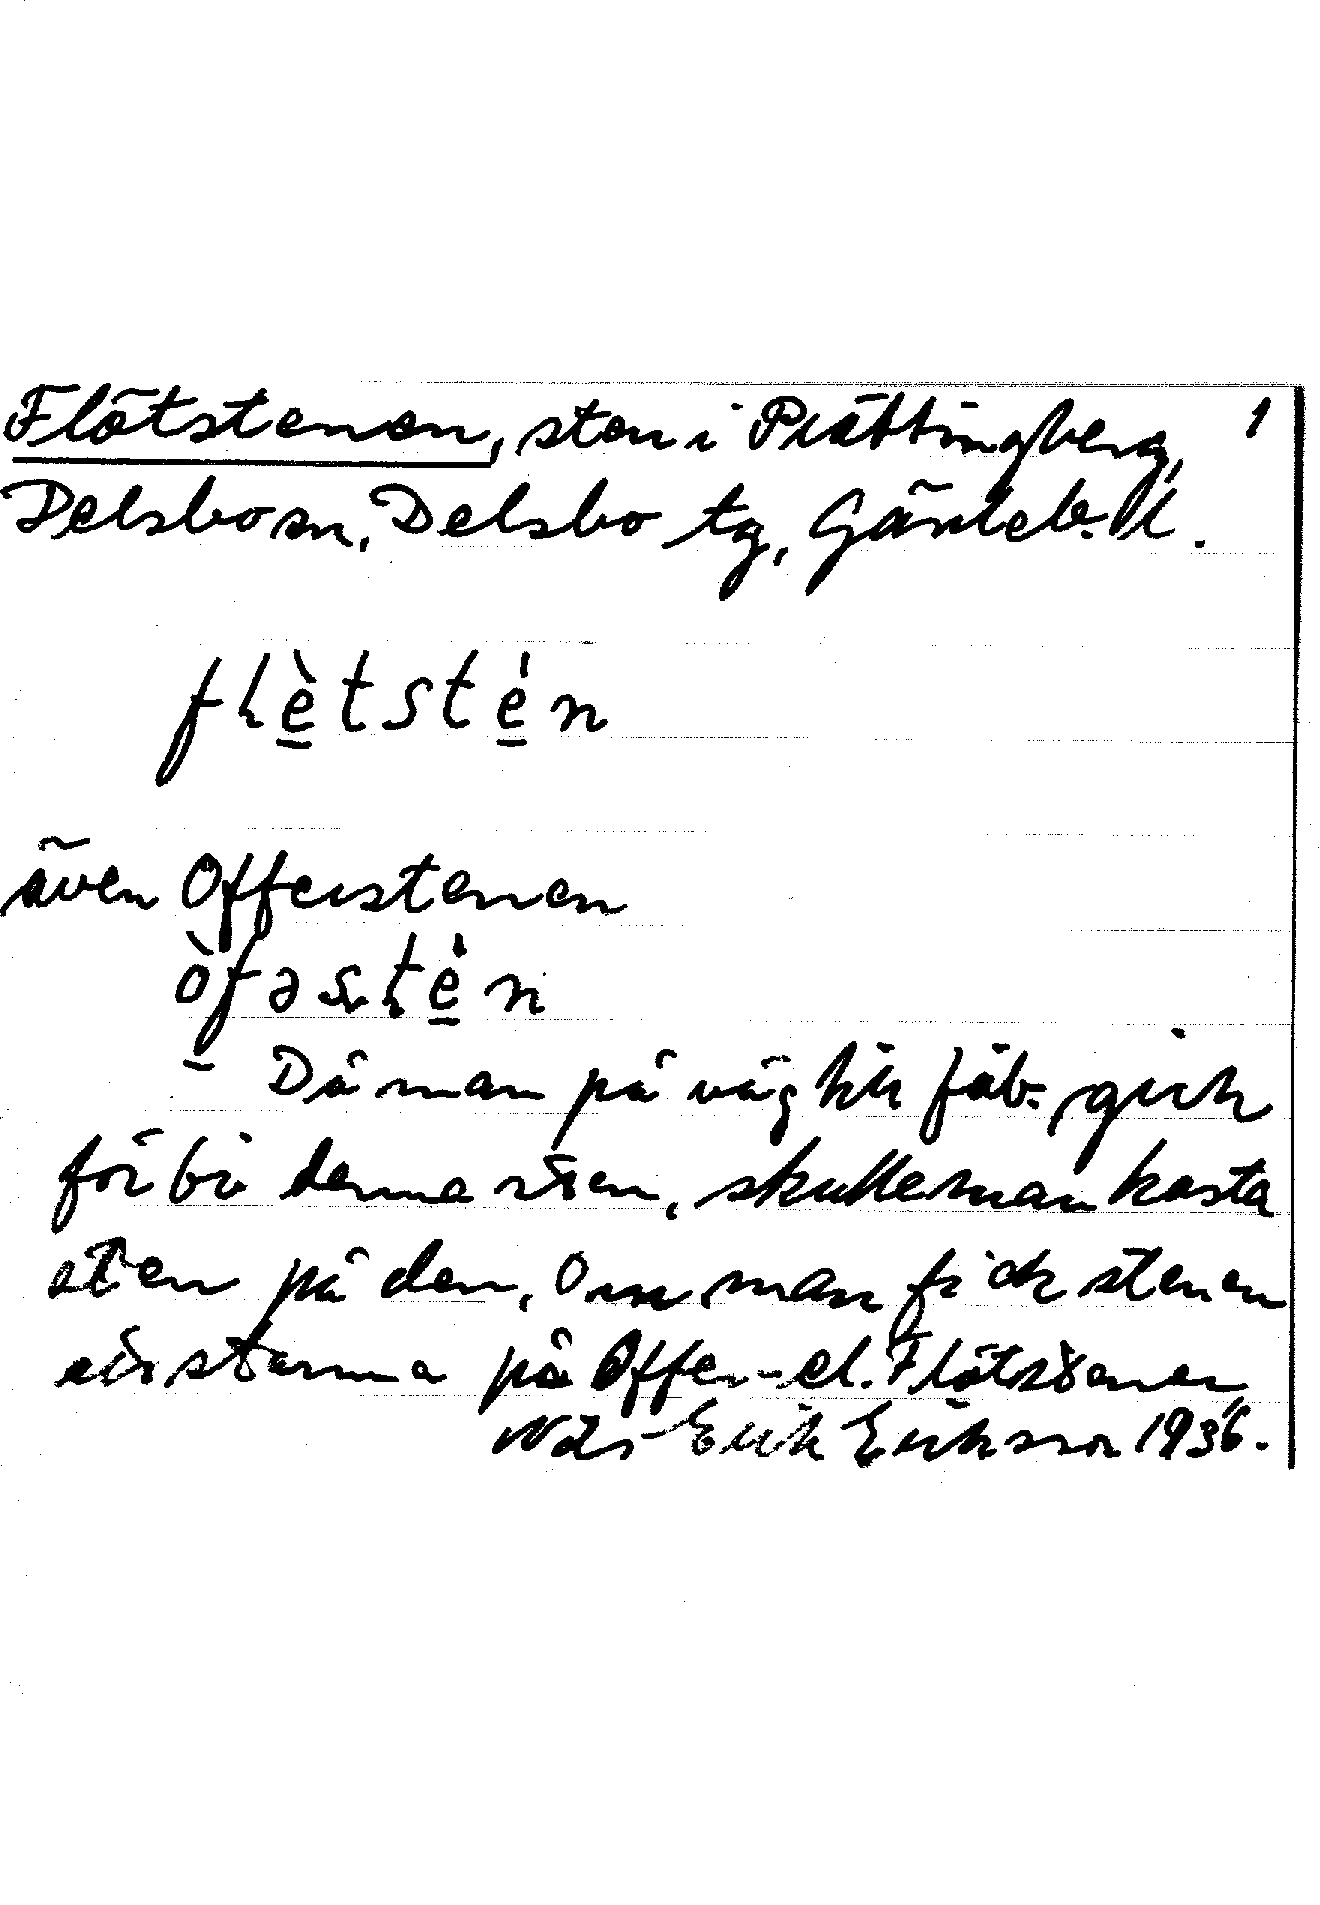 Flötstenen, sten i Prättingberg, 1
Delsbo sn, Delsbo tg, Gävleb. l.
flètstén
även Offerstenen
òfəsṭén
Då man på väg till fäb. gick
förbi denna sten, skulle man kasta
sten på den. Om man fick stenen
att stanna på Offer- el. Flötstenen
Nils Erik Eriksson 1936.